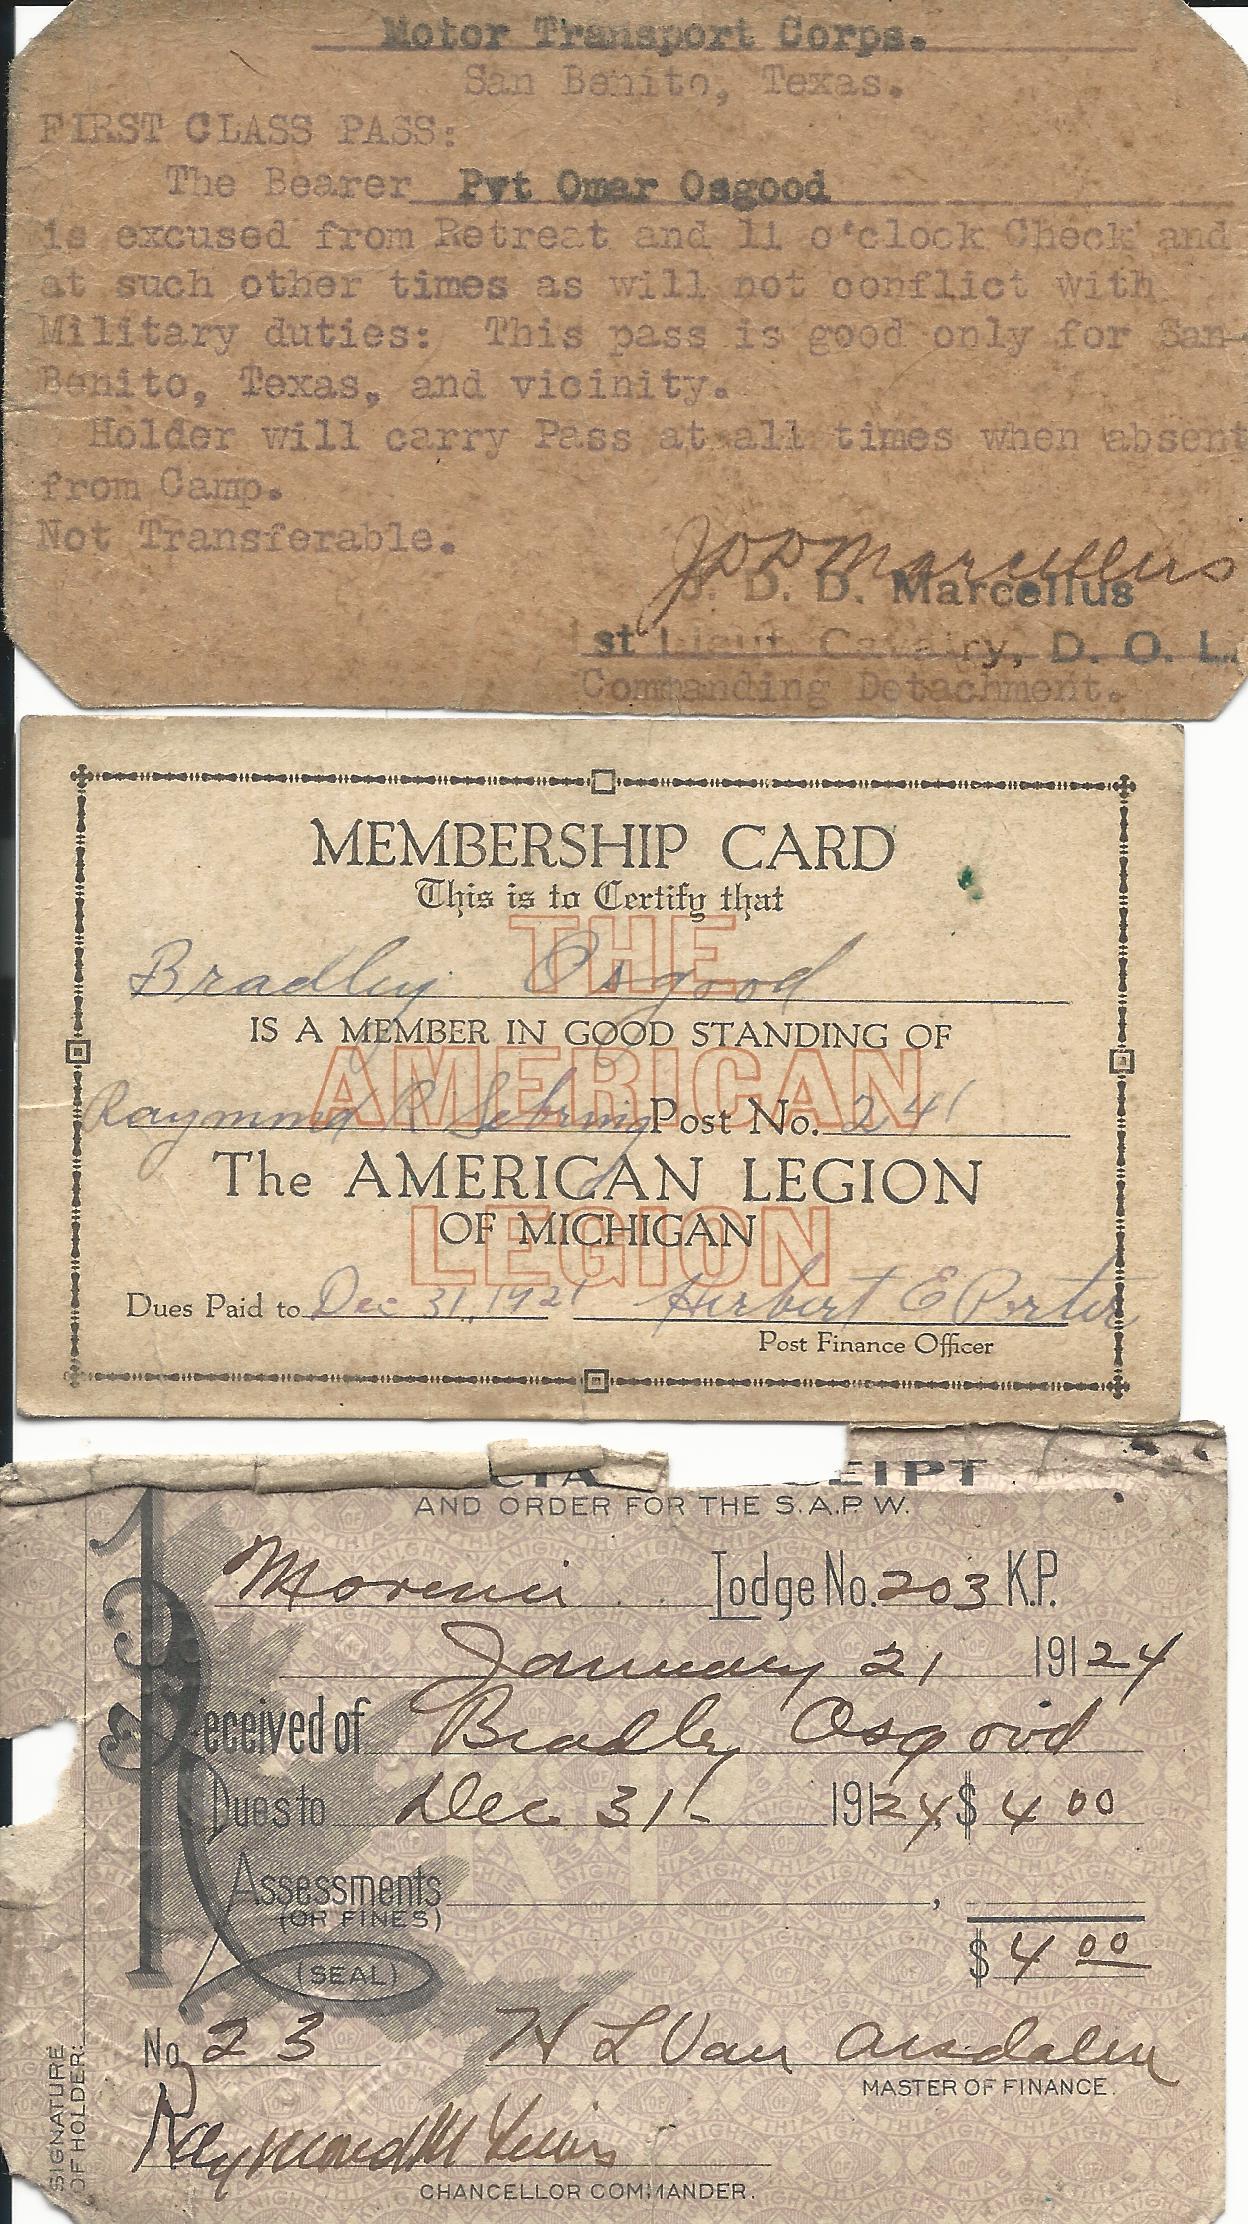 Motor Transport Corps.
San Benito, Texas.
FIRST CLASS PASS:
The Bearer Pvt Omar Osgood
is excused from Retreat and 11 o'clock Check and
at such other times as will not conflict with
Military duties: This pass is good only for San-
Benito, Texas, and vicinity.
Holder will carry Pass at all times when absent
from Camp.
Not Transferable.
J D D Marcellus
J. D. D. Marcellus
1st Lieut. Cavalry, D. O. L.
Commanding Detachment.
MEMBERSHIP CARD
This is to Certify that
THE
Bradley Osgood
IS A MEMBER IN GOOD STANDING OF
AMERICAN
Raymond R Sebring Post No. 241
The AMERICAN LEGION
LEGION
OF MICHIGAN
Dues Paid to Dec 31, 1921 Herbert E Porter
Post Finance Officer
EIPT
AND ORDER FOR THE S.A.P.W.
Morenci Lodge No. 203 K.P.
January 21 19124
Received of Bradley Osgood
Dues to Dec 31- 19124 $ 4 00
Assessments ,
(OR FINES)
$ 4 00
(SEAL)
No. 23 H L Van Arsdalen
MASTER OF FINANCE.
Raymond M
CHANCELLOR COMMANDER.
SIGNATURE
OF HOLDER: